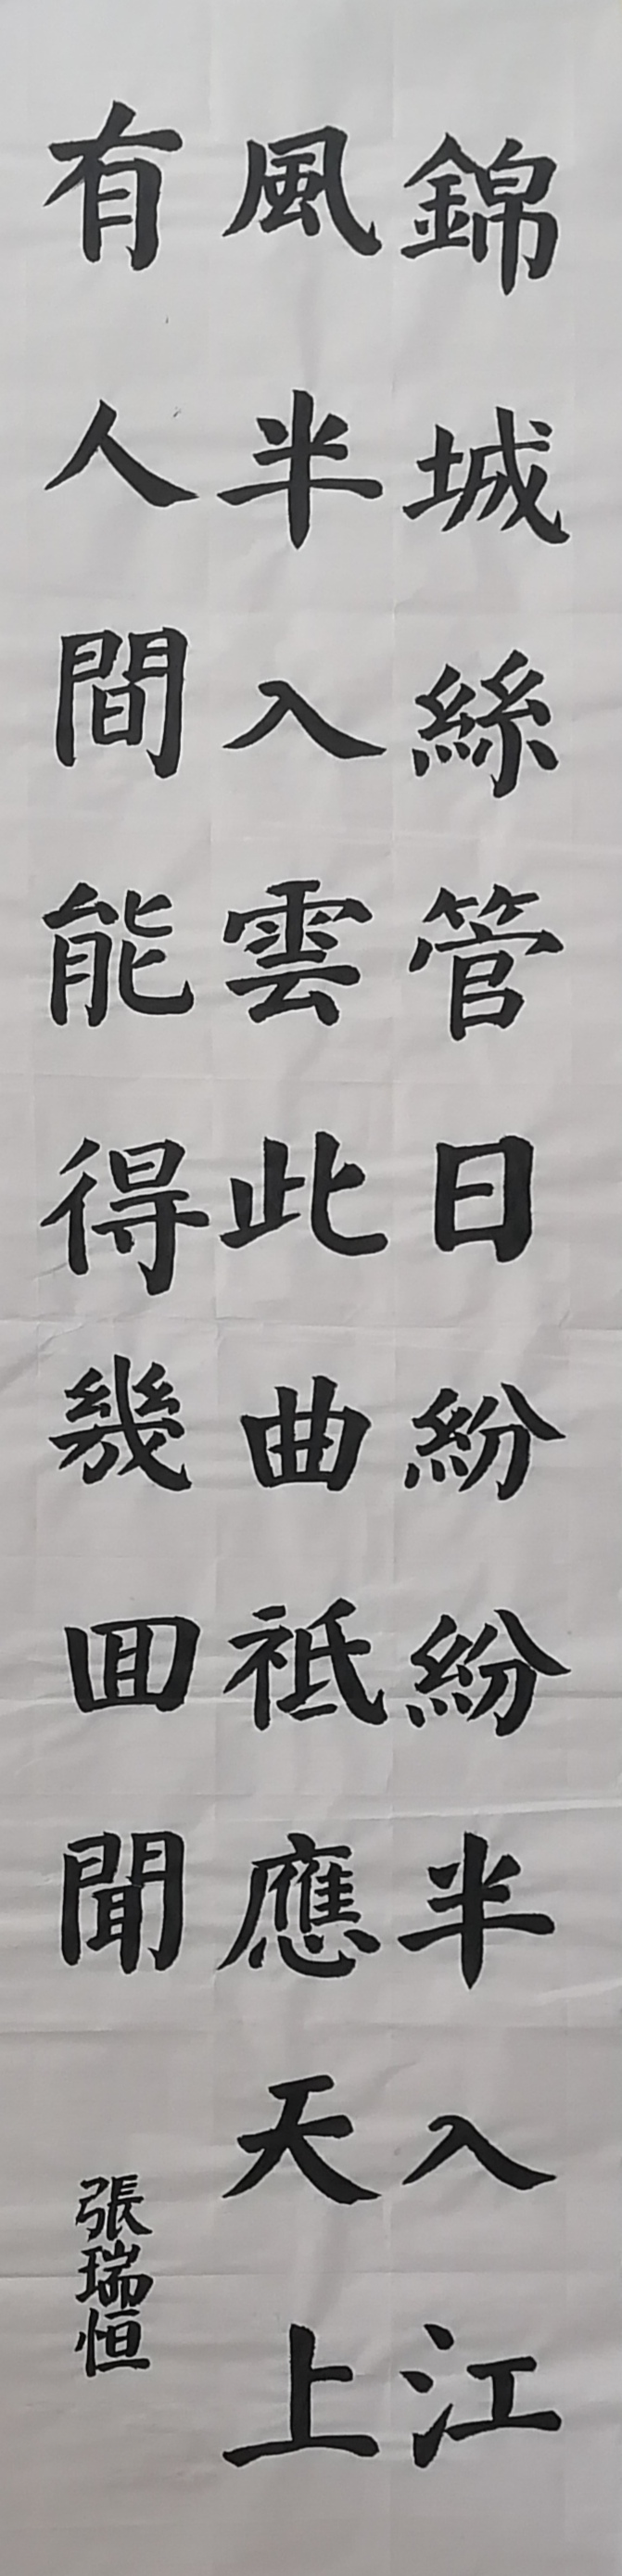 錦城絲管日紛紛半入江
風半入雲此曲祗應天上
有人間能得幾回聞
張瑞恒